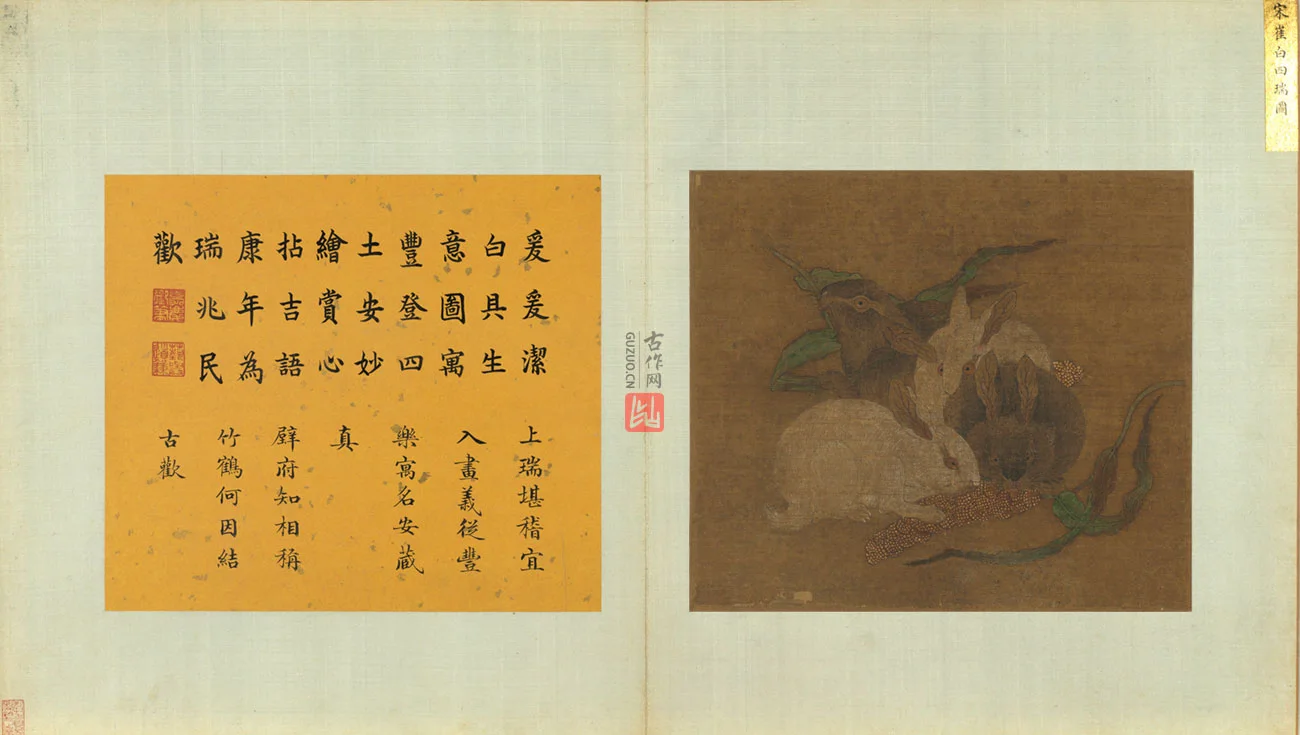 宋崔白四瑞圖
古作网
GUZUO.CN
爰爰潔
白具生
意圖寓
豐登四
土安妙
繪賞心
拈吉語
康年為
瑞兆民
歡
上瑞堪稽宜
入畫義從豐
樂寓名安藏
真
璧府知相稱
竹鶴何因結
古歡